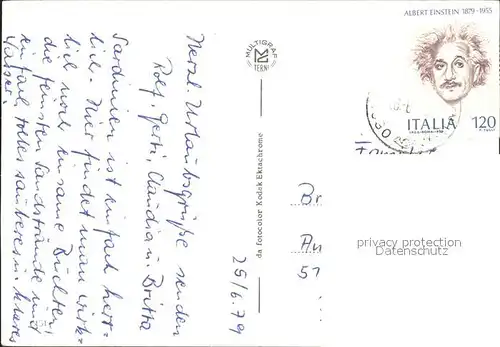 ALBERT EINSTEIN 1879-1955
ITALIA 120
MULTIGRAF
TERNI
da fotocolor Kodak Ektachrome
25/6.79
Herzl. Urlaubsgrüße senden
Rolf, Gerti, Claudia u. Britta
Sardinien ist einfach herr-
lich. Hier findet man wirk-
lich noch einsame Buchten,
die feinsten Sandstrände und
einfach tolles sauberes u. klares
Wasser.
Br
An
51
privacy protection
Datenschutz